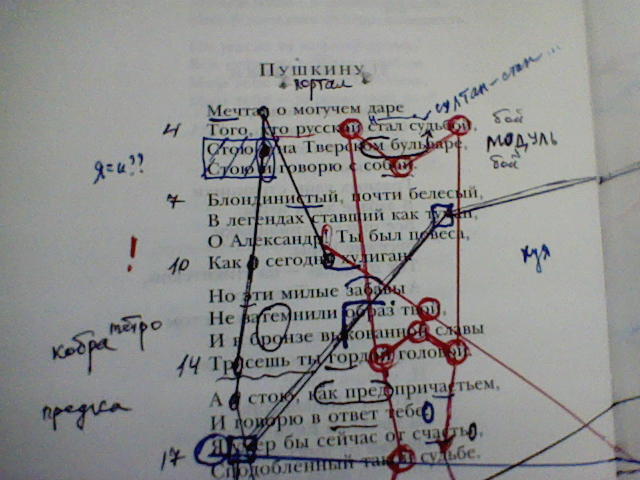 Пушкину
портал
Мечтая о могучем даре
4 Того, кто русской стал судьбой,
Стою я на Тверском бульваре,
Стою и говорю с собой.
султан-стан...
бой
модуль
бой
я=и??
7 Блондинистый, почти белесый,
В легендах ставший как туман,
О Александр! Ты был повеса,
10 Как я сегодня хулиган.
!
Но эти милые забавы
Не затемнили образ твой,
И в бронзе выкованной славы
14 Трясешь ты гордой головой.
кобра
предка
А я стою, как пред причастьем,
И говорю в ответ тебе
Я умер бы сейчас от счастья,
17 Сподобленный такой судьбе.